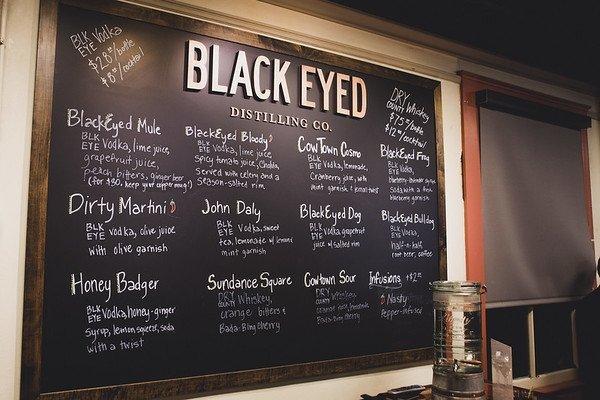 BLK EYE Vodka
$28⁰⁰/bottle
$8⁰⁰/cocktail
BLACK EYED
DISTILLING CO.
DRY COUNTY Whiskey
$75⁰⁰/bottle
$12⁰⁰/cocktail
BlackEyed Mule
BLK EYE Vodka, lime juice,
grapefruit juice,
peach bitters, ginger beer
(for $30, keep your copper mug!)
BlackEyed Bloody
BLK EYE Vodka, lime juice
Spicy tomato juice, Cholula,
Served with celery and a
season-salted rim.
CowTown Cosmo
BLK EYE Vodka, lemonade,
Cranberry juice, with
mint garnish &
BlackEyed Frog
BLK EYE Vodka,
Soda with a fresh
blueberry garnish
Dirty Martini
BLK EYE Vodka, olive juice
with olive garnish
John Daly
BLK EYE Vodka, sweet
tea, lemonade w/ lemon &
mint garnish
BlackEyed Dog
BLK EYE Vodka, grapefruit
juice w/ salted rim
BlackEyed Bulldog
BLK EYE Vodka,
half-n-half,
root beer, coffee
Honey Badger
BLK EYE Vodka, honey-ginger
Syrup, lemon squeeze, soda
with a twist
Sundance Square
DRY COUNTY Whiskey,
orange bitters &
Bada-Bing cherry
Cowtown Sour
DRY COUNTY Whiskey,
orange juice, lemonade,
Bada-Bing cherry
Infusions +$2.⁰⁰
Nasty
Pepper-infused